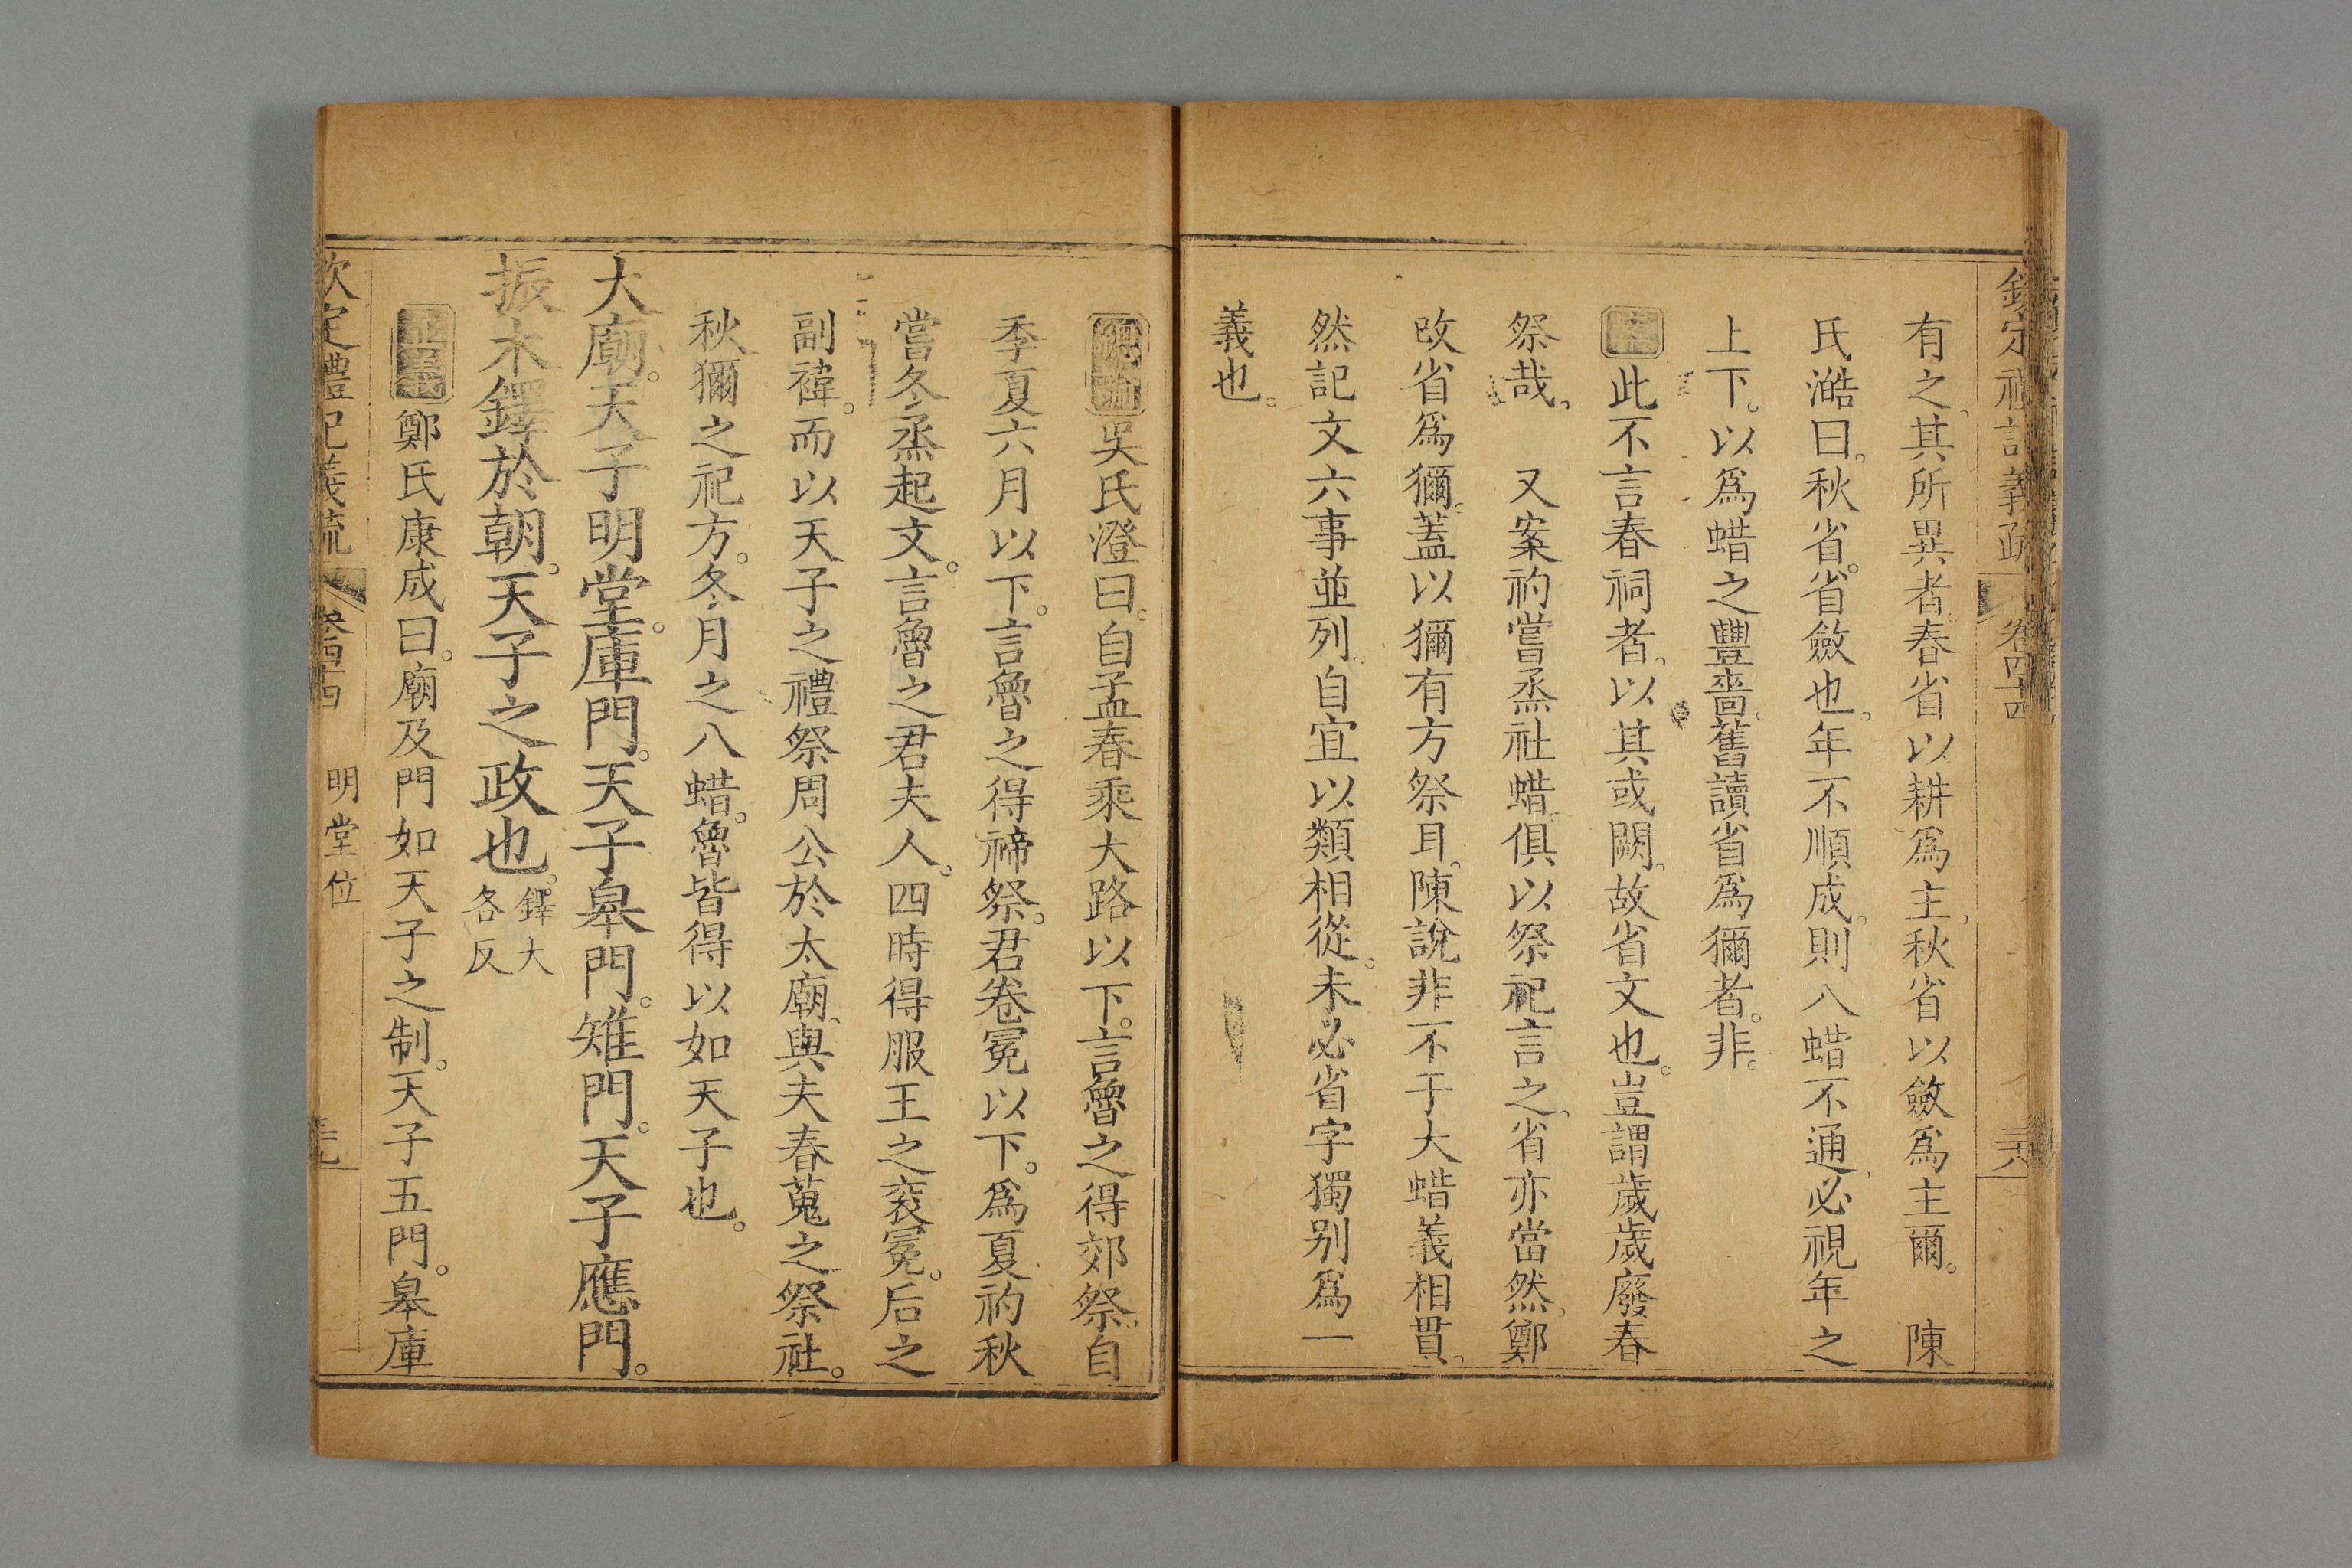 欽定禮記義疏 卷四十四 三六
有之、其所異者、春省以耕爲主、秋省以斂爲主爾。 陳
氏澔曰。秋省。省斂也。年不順成。則八蜡不通、必視年之
上下。以爲蜡之豐嗇。舊讀省爲獮者。非。
案此不言春祠者、以其或闕、故省文也。豈謂歲歲廢春
祭哉、 又案礿嘗烝社蜡。俱以祭祀言之、省亦當然、鄭
改省爲獮。蓋以獮有方祭耳。陳說非不于大蜡義相貫。
然記文六事並列。自宜以類相從。未必省字獨别爲一
義也。
總論吳氏澄曰。自孟春乘大路以下。言魯之得郊祭。自
季夏六月以下。言魯之得禘祭。君卷冕以下。爲夏礿秋
嘗冬烝起文。言魯之君夫人。四時得服王之衮冕。后之
副褘。而以天子之禮祭周公於太廟、與夫春蒐之祭社。
秋獮之祀方。冬月之八蜡。魯皆得以如天子也。
大廟。天子明堂。庫門。天子皋門。雉門。天子應門。
振木鐸於朝。天子之政也。鐸大各反
正義鄭氏康成曰。廟及門如天子之制。天子五門。皋庫
欽定禮記義疏 卷四十四 明堂位 三七